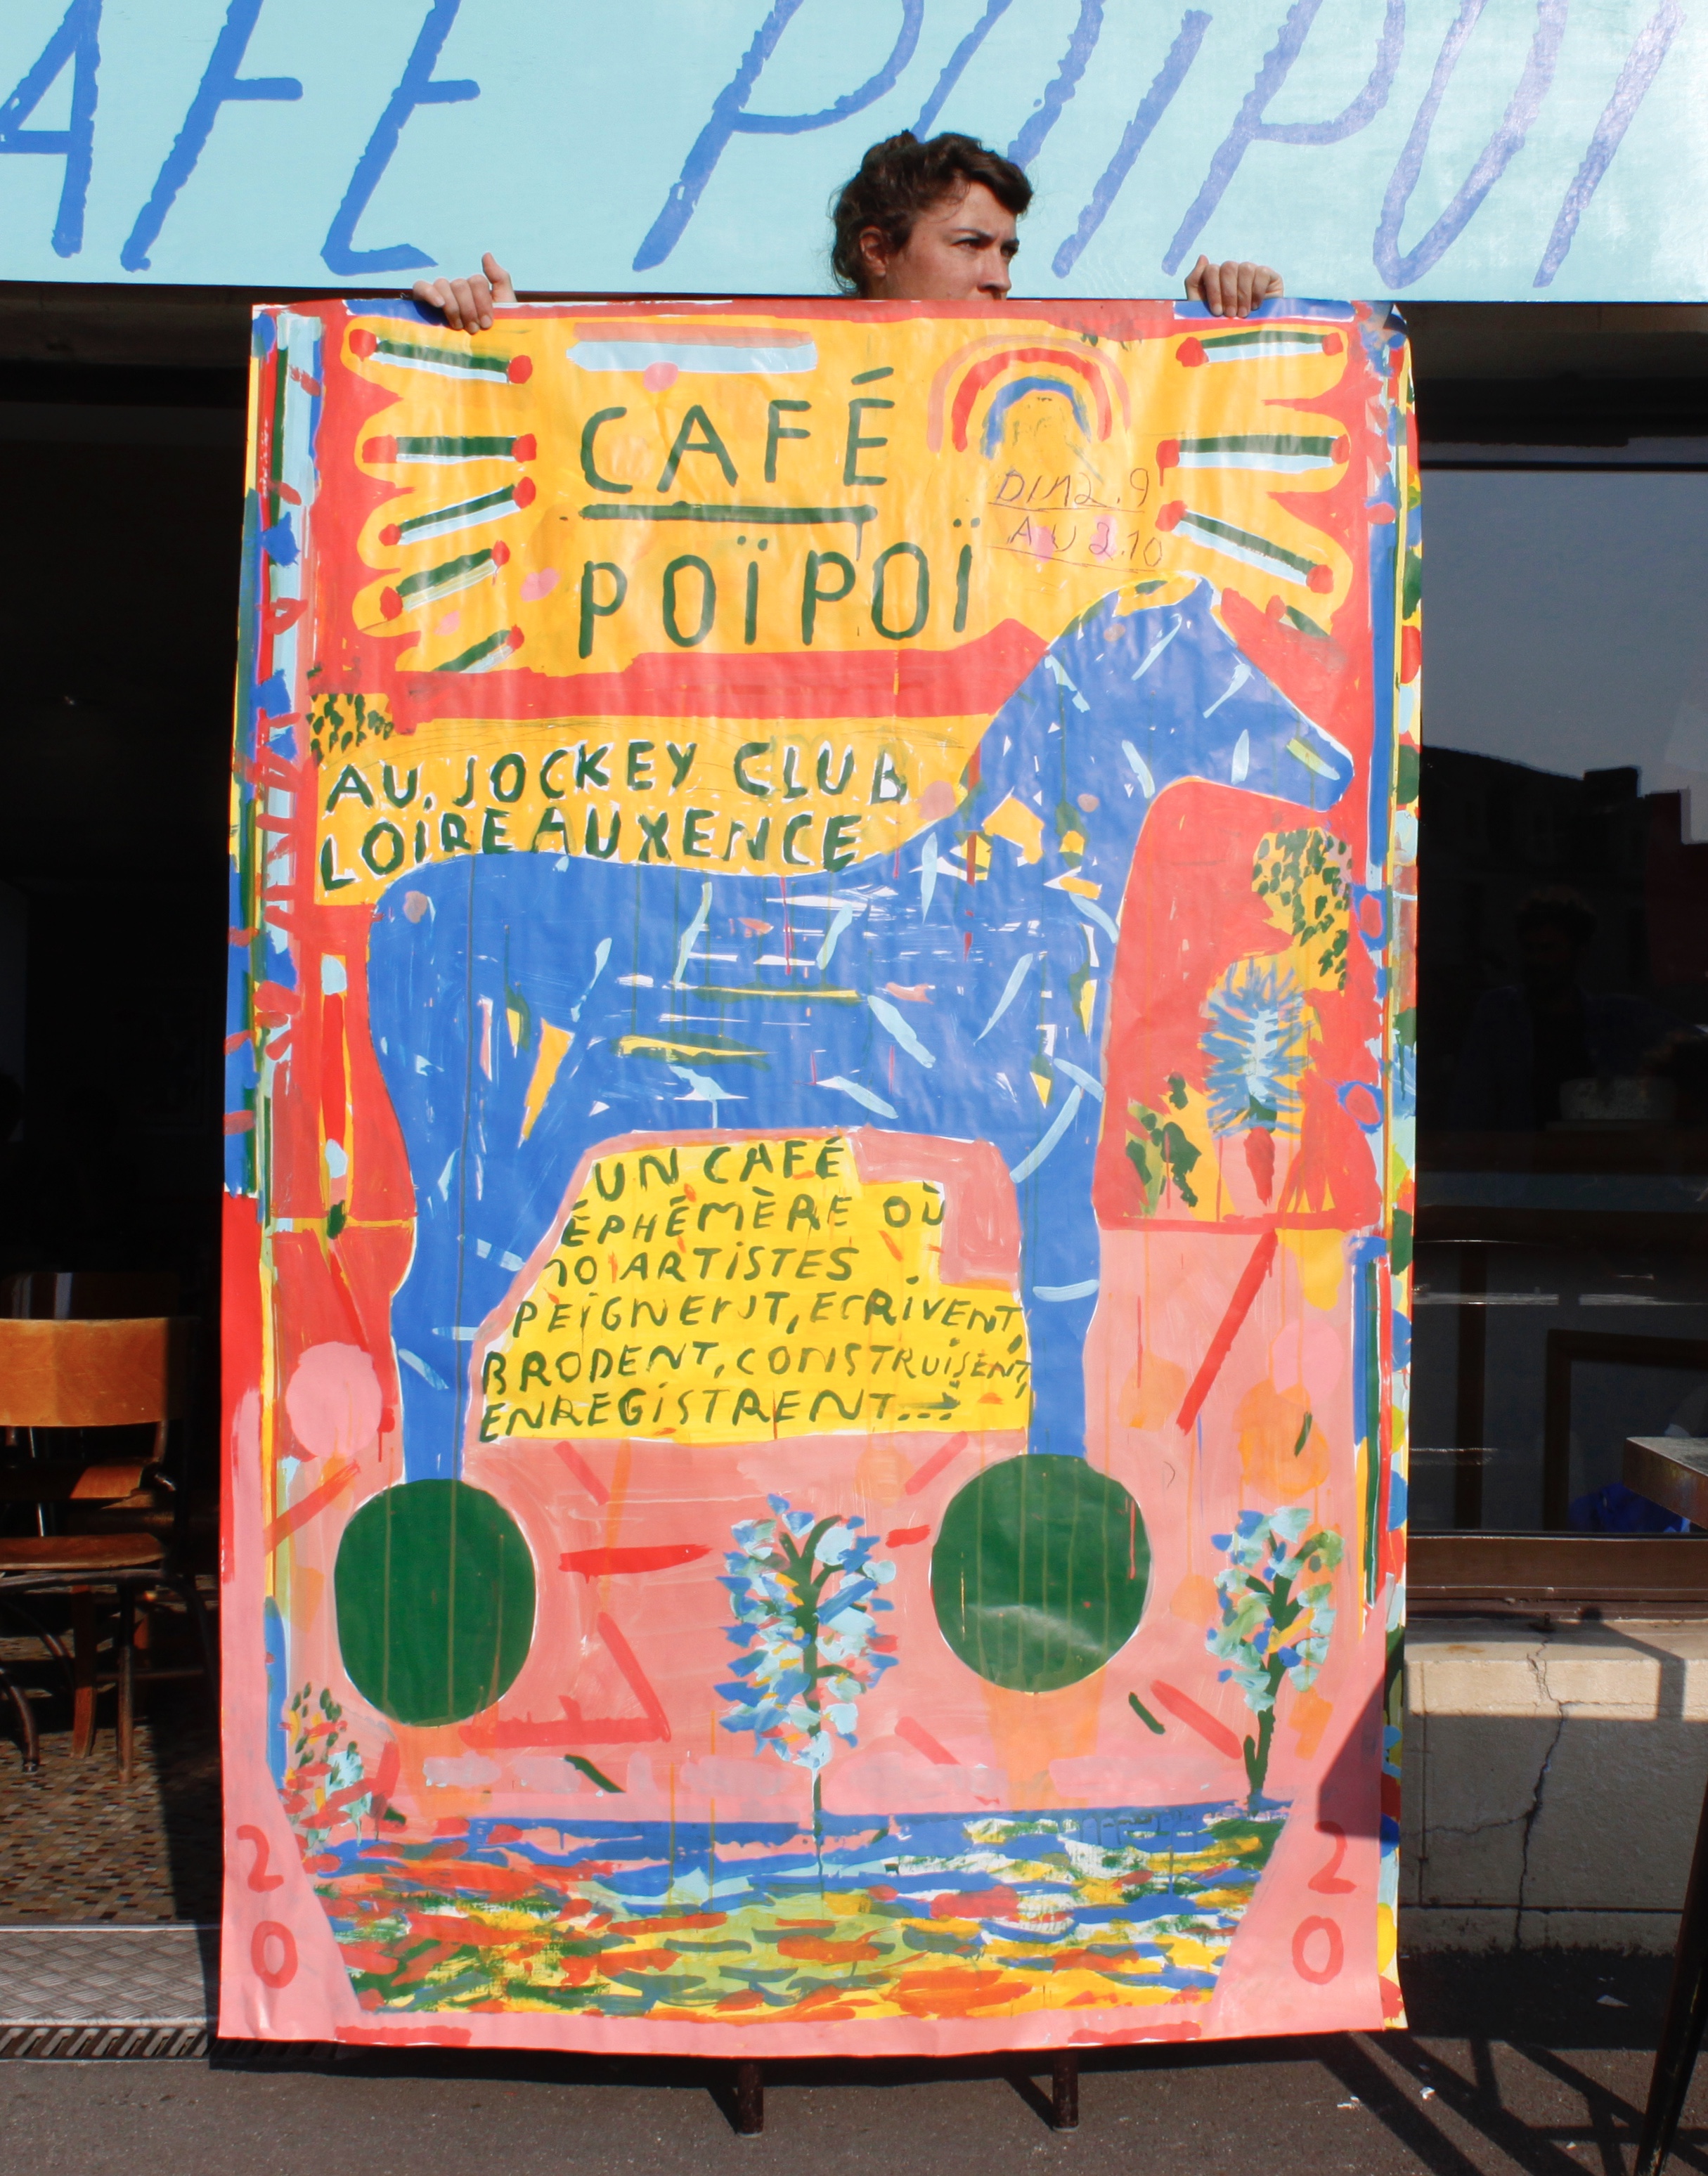 AFE POÏPOÏ
CAFÉ
POÏPOÏ
DU 12.9
AU 2.10
AU JOCKEY CLUB
LOIREAUXENCE
UN CAFÉ
ÉPHÉMÈRE OÙ
10 ARTISTES
PEIGNENT, ECRIVENT,
BRODENT, CONSTRUISENT,
ENREGISTRENT...
20
20